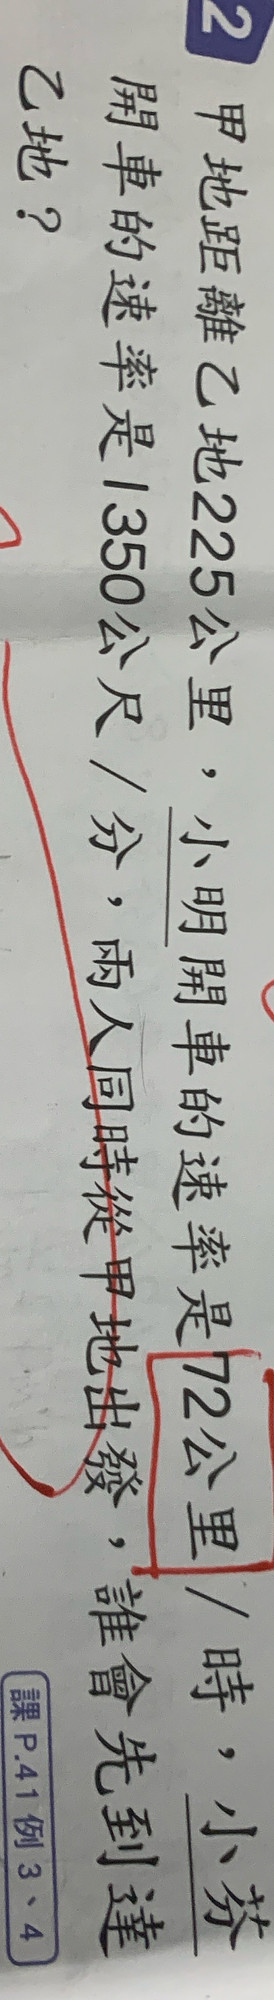 2
甲地距離乙地225公里，小明開車的速率是72公里/時，小芬
開車的速率是1350公尺/分，兩人同時從甲地出發，誰會先到達
乙地？
課P.41例3、4